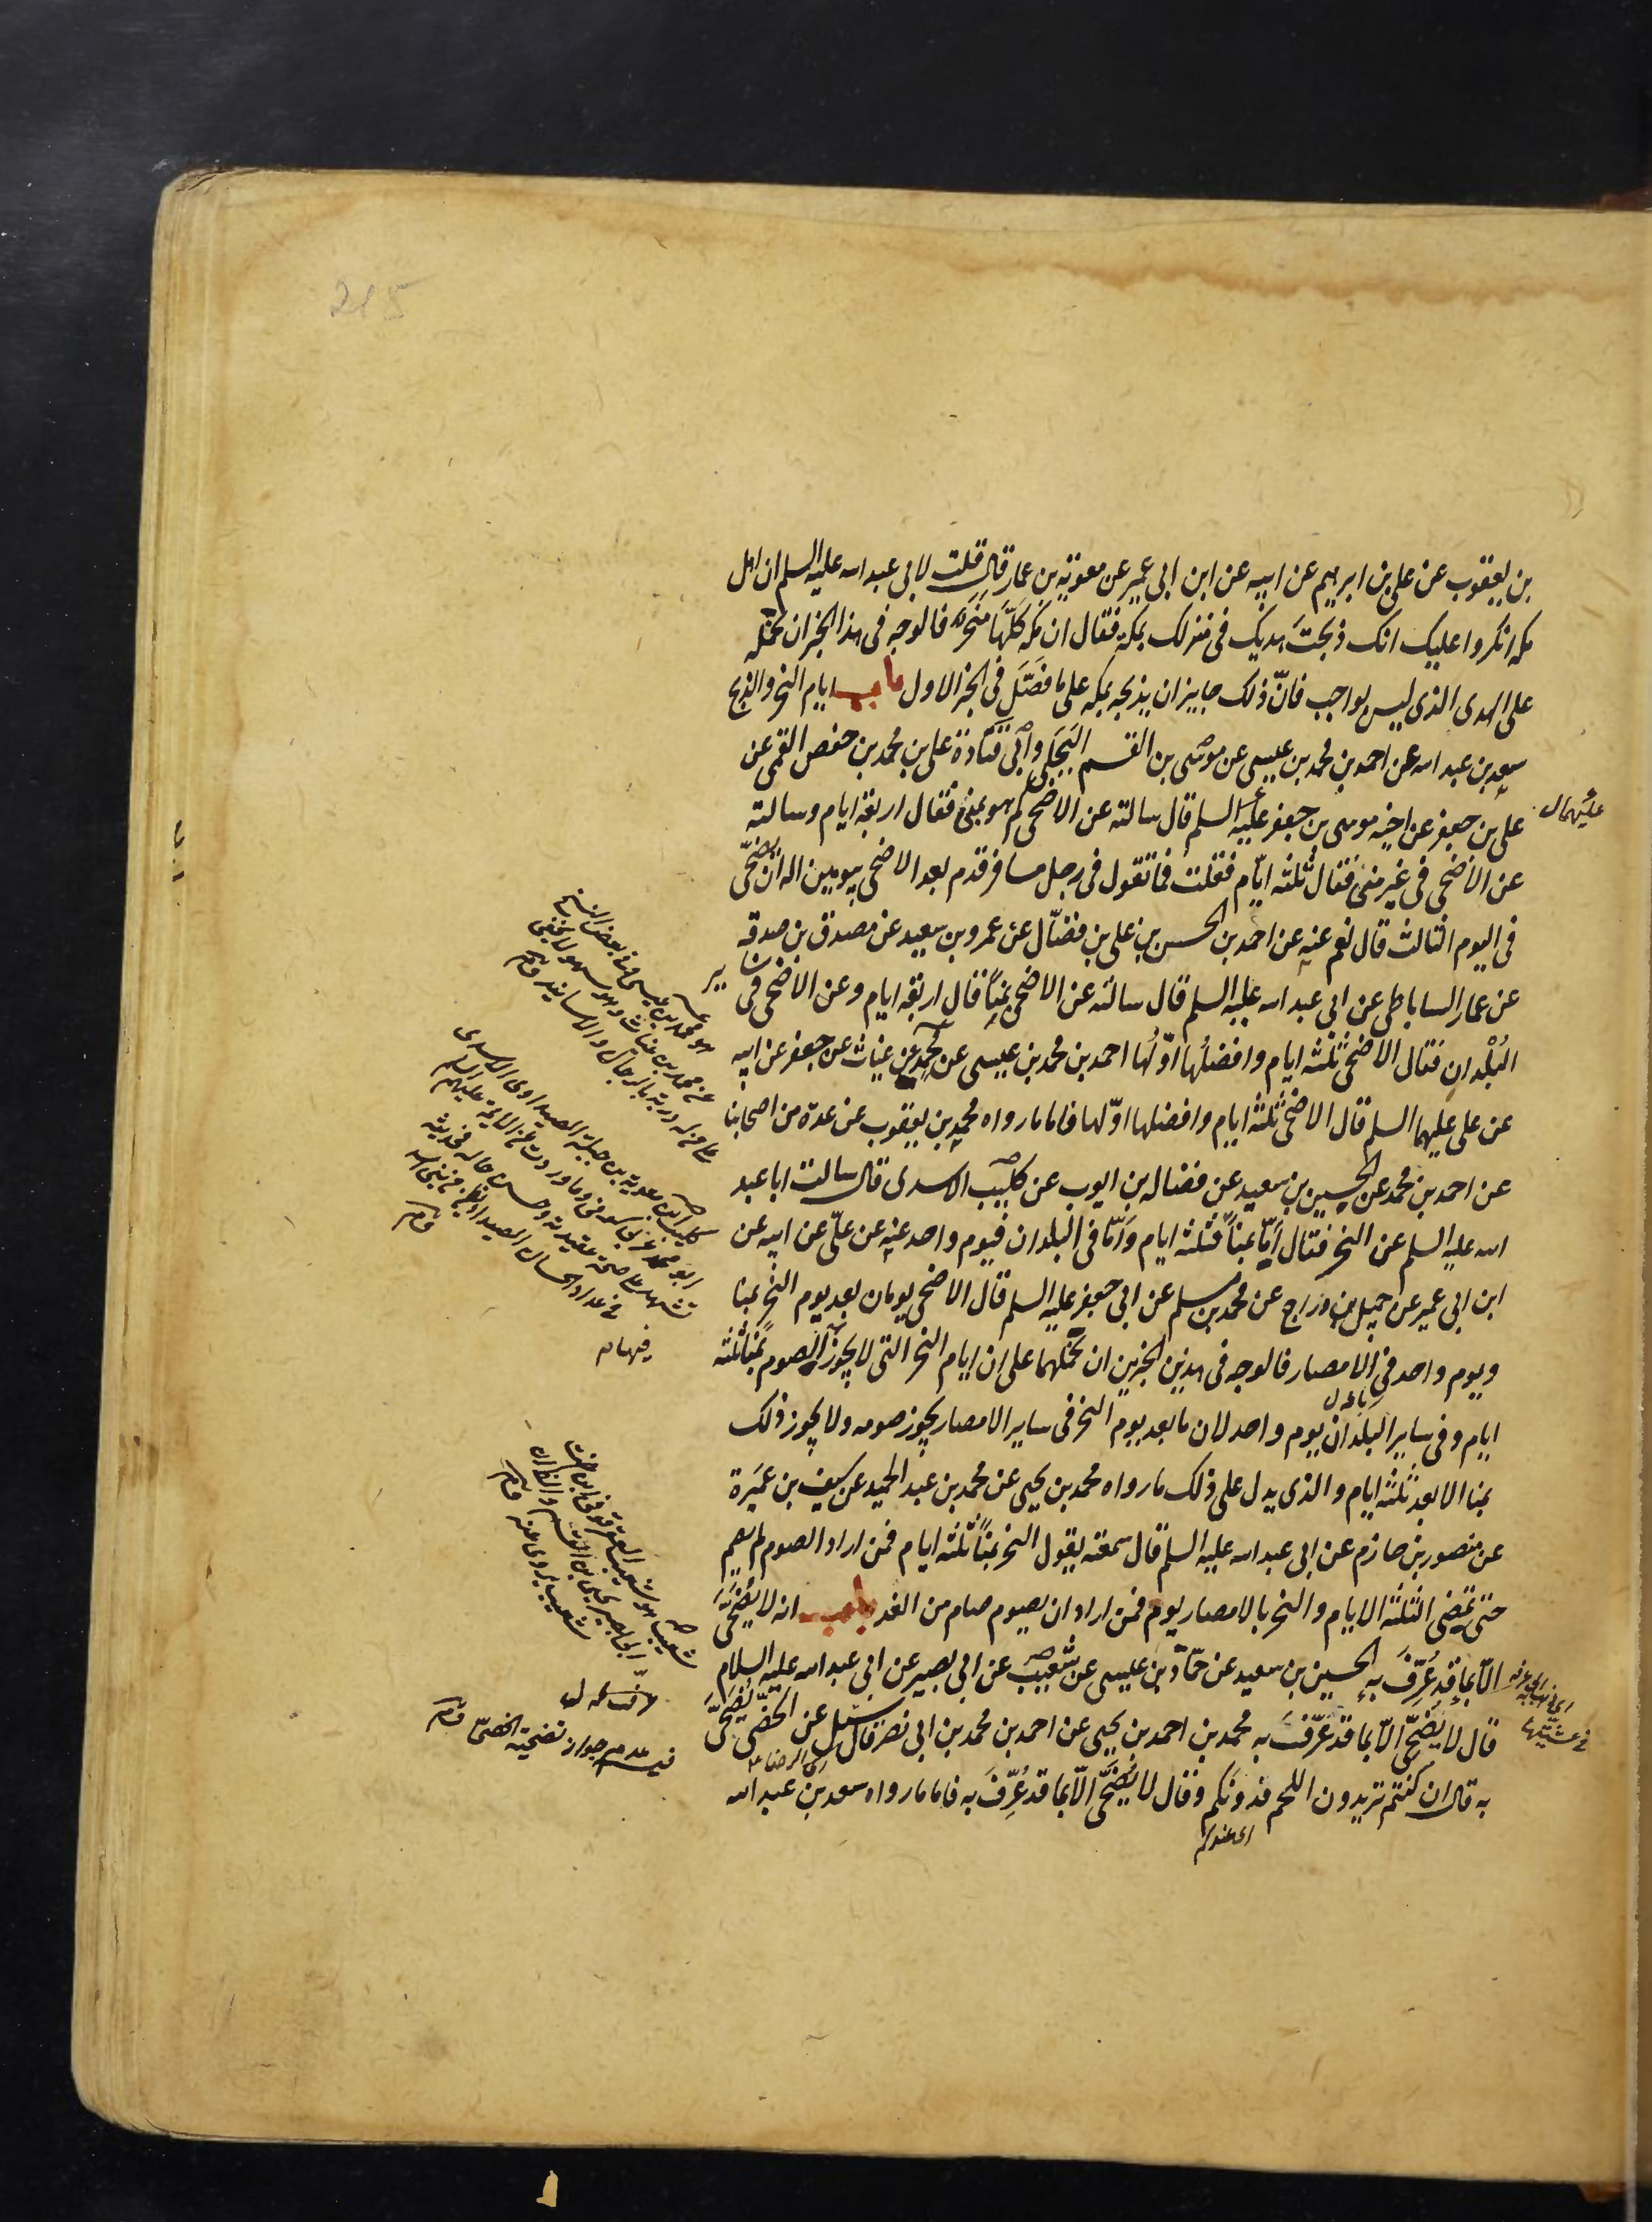 215
بن يعقوب عن على بن ابرهيم عن ابيه عن ابن ابى عمير عن معوية بن عمار قال قلت لابى عبد الله عليه السلم ان اهل
مكه انكروا عليك انك ذبحتَ هديك فى منزلك بمكة فقال ان مكه كلّها منحر فالوجه فى هذا الخبر ان نحمله
على الهدى الذى ليس بواجب فانّ ذلك جايز ان يذبحه بمكه على ما فصّل فى الخبر الاول باب ايام النحر والذبح
سعد بن عبد الله عن احمد بن محمد بن عيسى عن موسى بن القسم البجلى وابى قتادة على بن محمد بن حفص القمى عن
على بن جعفر عن اخيه موسى بن جعفر عليه السلم قال سالته عن الاضحى كم هو بمنى فقال اربعة ايام وسالته
عليهما ال
عن الاضحى فى غير منى فقال ثلثه ايّام فقلت فما تقول فى رجل مسافر قدم بعد الاضحى بيومين اله ان يضحّى
فى اليوم الثالث قال نعم عنه عن احمد بن الحسن بن على بن فضّال عن عمرو بن سعيد عن مصدق بن صدقه
عن عمار الساباطى عن ابى عبد الله عليه السلم قال سالته عن الاضحى بمنًا قال اربعة ايام وعن الاضحى فى ساير
البُلْدان فقال الاضحى ثلثه ايام وافضلُها اوّلُها احمد بن محمد بن عيسى عن محمد عن غياث عن جعفر عن ابيه
عن على عليهما السلم قال الاضحى ثلثة ايام وافضلها اوّلها فاما ما رواه محمد بن يعقوب عن عدة من اصحابنا
عن احمد بن محمد عن الحسين بن سعيد عن فضاله بن ايوب عن كليب الاسدى قال سالت ابا عبد
الله عليه السلم عن النحر فقال اَمّا بمنًا فثلثه ايام وَامّا فى البلدان فيوم واحد عنه عن علىّ عن ابيه عن
ابن ابى عمير عن جميل بن دراج عن محمد بن مسلم عن ابى جعفر عليه السلم قال الاضحى يومان بعد يوم النحر بمنا
ويوم واحد فى الامصار فالوجه فى هذين الخبرين ان نحملهما على ان ايام النحر التى لا يجوز الصوم بمنًا ثلثة
ايام وفى ساير البلدان يوم واحد لان ما بعد يوم النحر فى ساير الامصار يجوز صومه ولا يجوز ذلك
بمنا الا بعد ثلثه ايام والذى يدل على ذلك ما رواه محمد بن يحيى عن محمد بن عبد الحميد عن سيف بن عَميرة
عن منصور بن حازم عن ابى عبد الله عليه السلم قال سمعته يقول النحر بمنًا ثلثه ايام فمن اراد الصوم لم يصم
حتى تمضى الثلثه الايام والنحر بالامصار يوم فمن اراد ان يصوم صام من الغد باب انه لا يُضحَّى
الّا بما قد عُرّفَ به الحسين بن سعيد عن حمّاد بن عيسى عن شعيب عن ابى بصير عن ابى عبد الله عليه السلام
قال لا يُضَحّى الّا بما قد عُرّفَ به محمد بن احمد بن يحيى عن احمد بن محمد بن ابى نصر قال سئل عن الخصى يُضَحّى
به قال ان كنتم تريدون اللحم فدونكم وقال لا يُضَحّى الّا بما قد عُرّفَ به فاما ما رواه سعد بن عبد الله
اى عندكم
فيهما
فيه عدم جواز تضحية الخصىّ